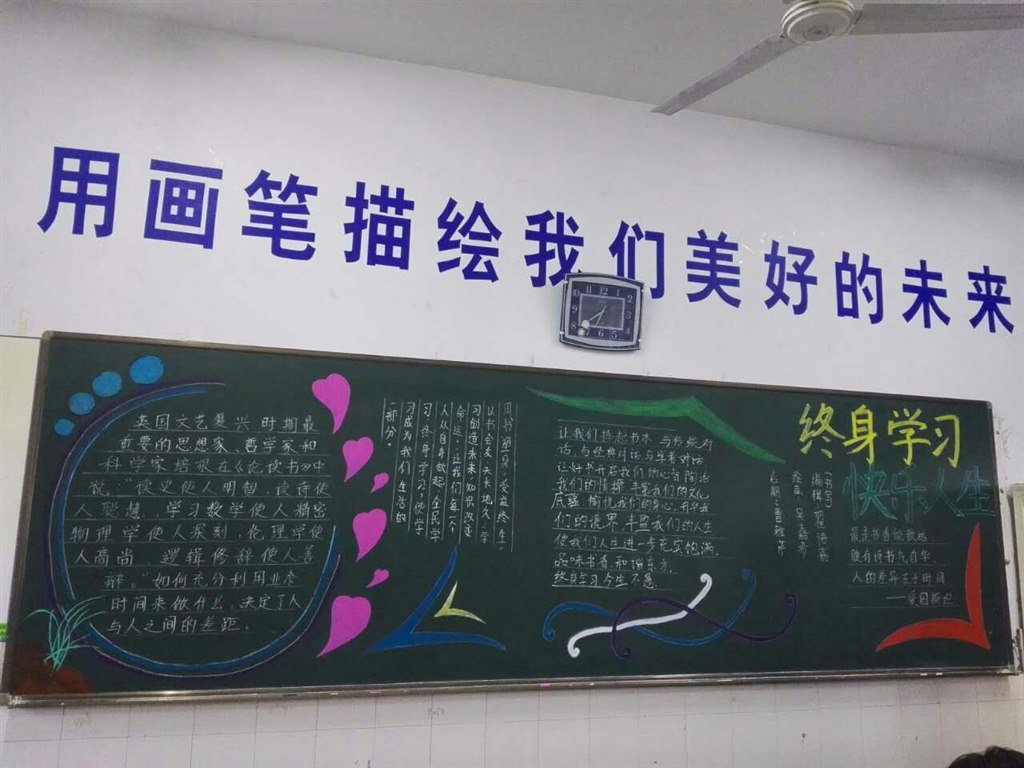 用画笔描绘我们美好的未来
英国文艺复兴时期最
重要的思想家、哲学家和
科学家培根在《论读书》中
说，“读史使人明智，读诗使
人聪慧，学习数学使人精密
物理学使人深刻，伦理学使
人高尚 逻辑修辞使人善
辩。”如何充分利用业余
时间来做什么，决定了人
与人之间的差距。
用书塑身，受益终生，
以书会友天长地久，学
习创造未来知识改变
命运，让我们每一个
人从自身做起全民学
习、终身学习，使学
习成为我们生活的
一部分。
让我们捧起书本 与传统对
话，与经典对话与
让好书开启我们的心
我们的情操 丰富我们的文化
底蕴 愉悦我们的身心，升华我
们的境界 丰盈我们的人生
使我们人生进一步充实饱满，
品味书香，和谐东方，
终身学习今生不息
终身学习
快乐人生
最是书香能致远
腹有诗书气自华
人的差异在于时间
——爱因斯坦